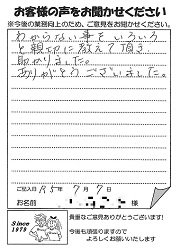 お客様の声をお聞かせください
※今後の業務向上のため、ご意見をお聞かせください。
わからない事をいろいろ
と親切に教えて頂き
助かりました。
ありがとうございました。
ご記入日 R5年 7月 7日
お名前 様
Since
1979
貴重なご意見ありがとうございます!
今後も頑張りますので
よろしくお願いいたします